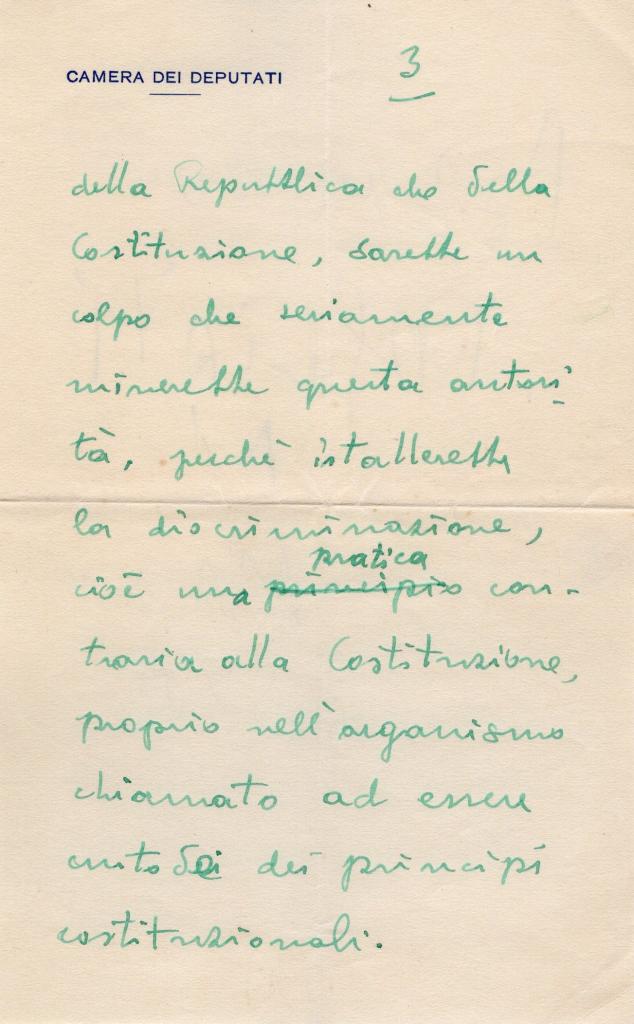 CAMERA DEI DEPUTATI
3
della Repubblica che della
Costituzione, sarebbe un
colpo che seriamente
minerebbe questa autori-
tà, perchè istallerebbe
la discriminazione,
pratica
cioè una principio con-
traria alla Costituzione,
proprio nell'organismo
chiamato ad essere
custode dei principi
costituzionali.